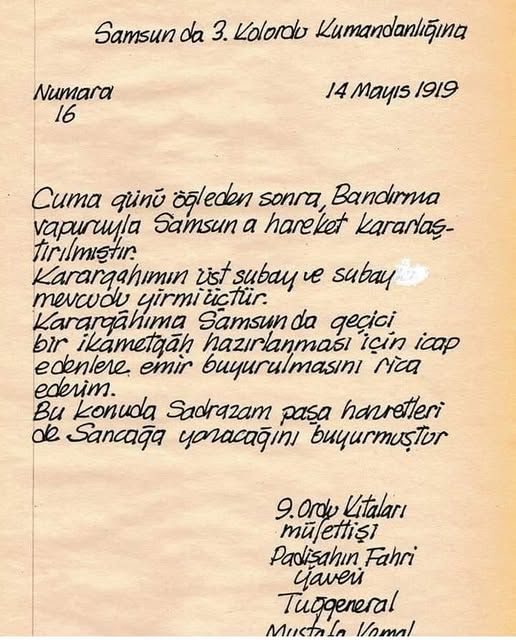 Samsun da 3. Kolordu Kumandanlığına
Numara
14 Mayıs 1919
16
Cuma günü öğleden sonra, Bandırma
vapuruyla Samsun a hareket kararlaş-
tırılmıştır.
Karargahımın üst subay ve subay
mevcudu yirmiüçtür.
Karargâhıma Samsun da geçici
bir ikametgâh hazırlanması için icap
edenlere emir buyurulmasını rica
ederim.
Bu konuda Sadrazam paşa hazretleri
de Sancağa yazacağını buyurmuştur
9. Ordu Kıtaları
müfettişi
Padişahın Fahri
yaveri
Tuğgeneral
Mustafa Kemal